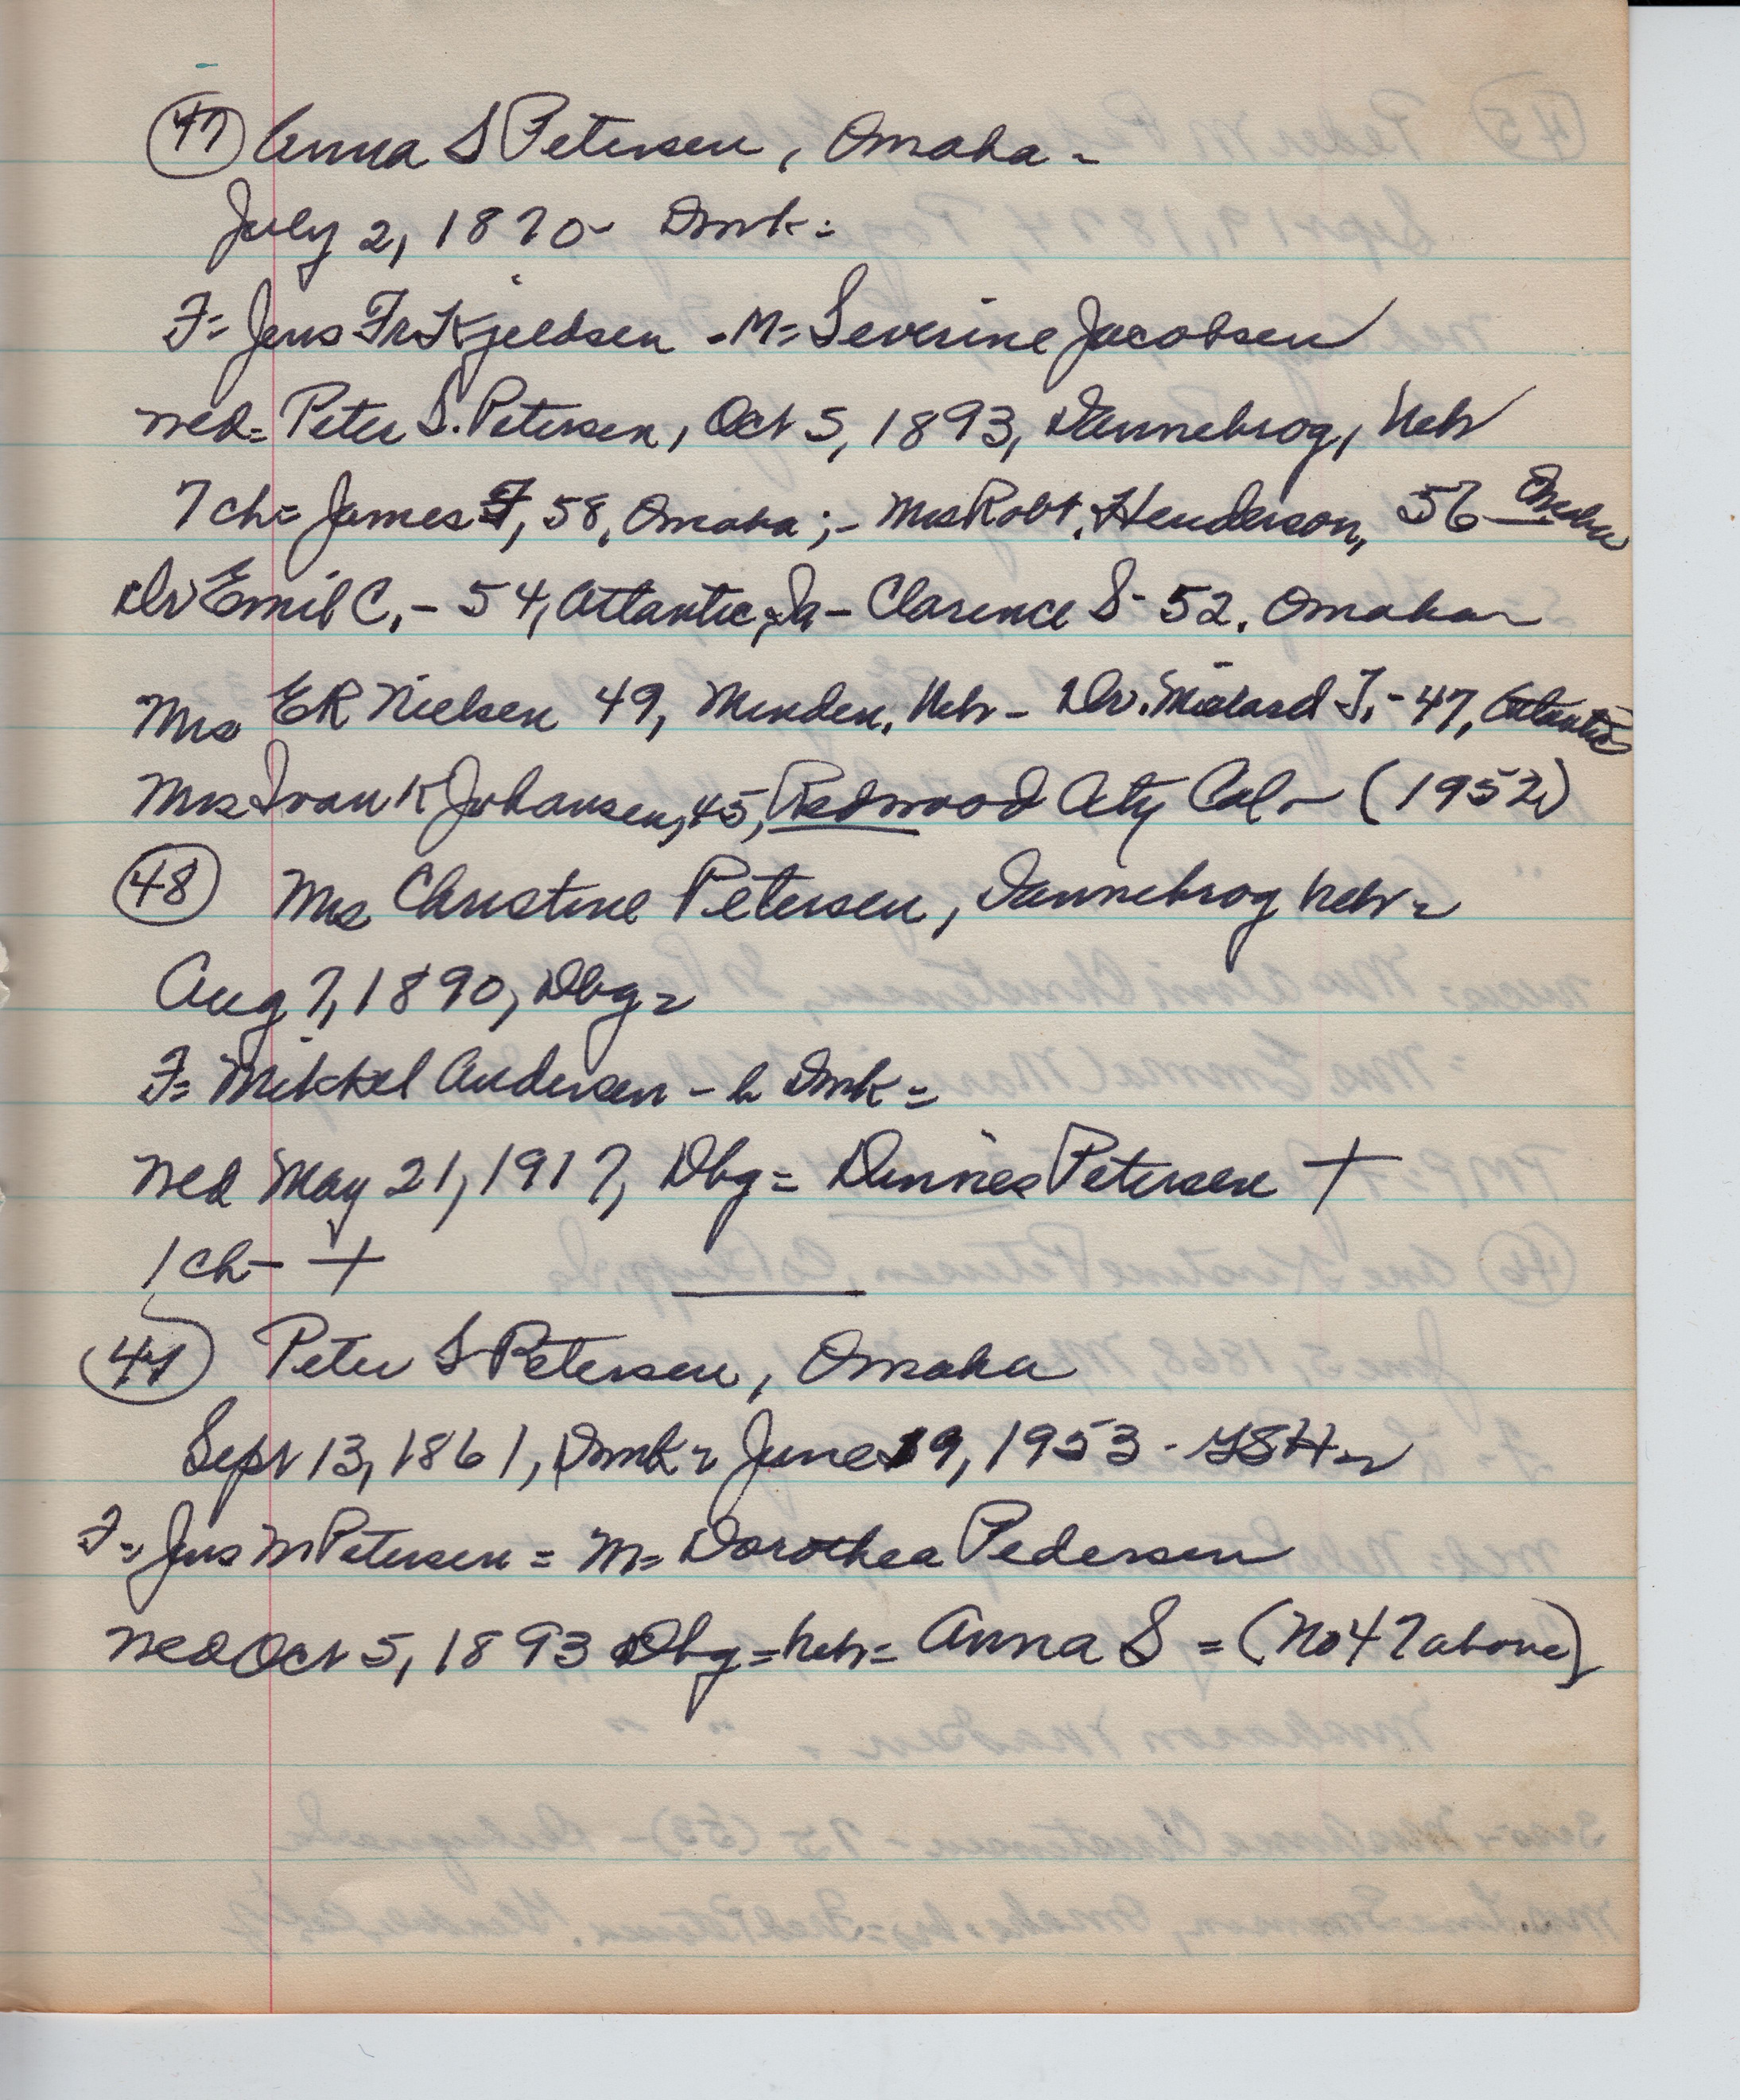 (47) Anna S Petersen, Omaha -
July 2, 1870 - Dmk =
F = Jens Fr Kjeldsen - M = Severine Jacobsen
med = Peter S. Petersen, Oct 5, 1893, Dannebrog, Nebr
7 ch = James F, 58, Omaha; - Mrs Robt. Henderson, 56 - Omaha
Dr Emil C, - 54, Atlantic, Ia - Clarence S - 52, Omaha
Mrs ER Nielsen 49, Minden, Nebr - Dr. Millard T, - 47, Atlantic
Mrs Ivan K Johansen, 45, Redwood City Cal - (1952)
(48) Mrs Christine Petersen, Dannebrog Nebr =
Aug 7, 1890, Dbg =
F = Mikkel Andersen - b Dmk =
med May 21, 1917, Dbg = Dinnes Petersen +
1 ch - +
Peter S Petersen, Omaha
Sept 13, 1861, Dmk = June 19, 1953 -
F = Jens M Petersen = M = Dorothea Pedersen
med Oct 5, 1893 Dbg = Nebr = Anna S = (No 47 above)